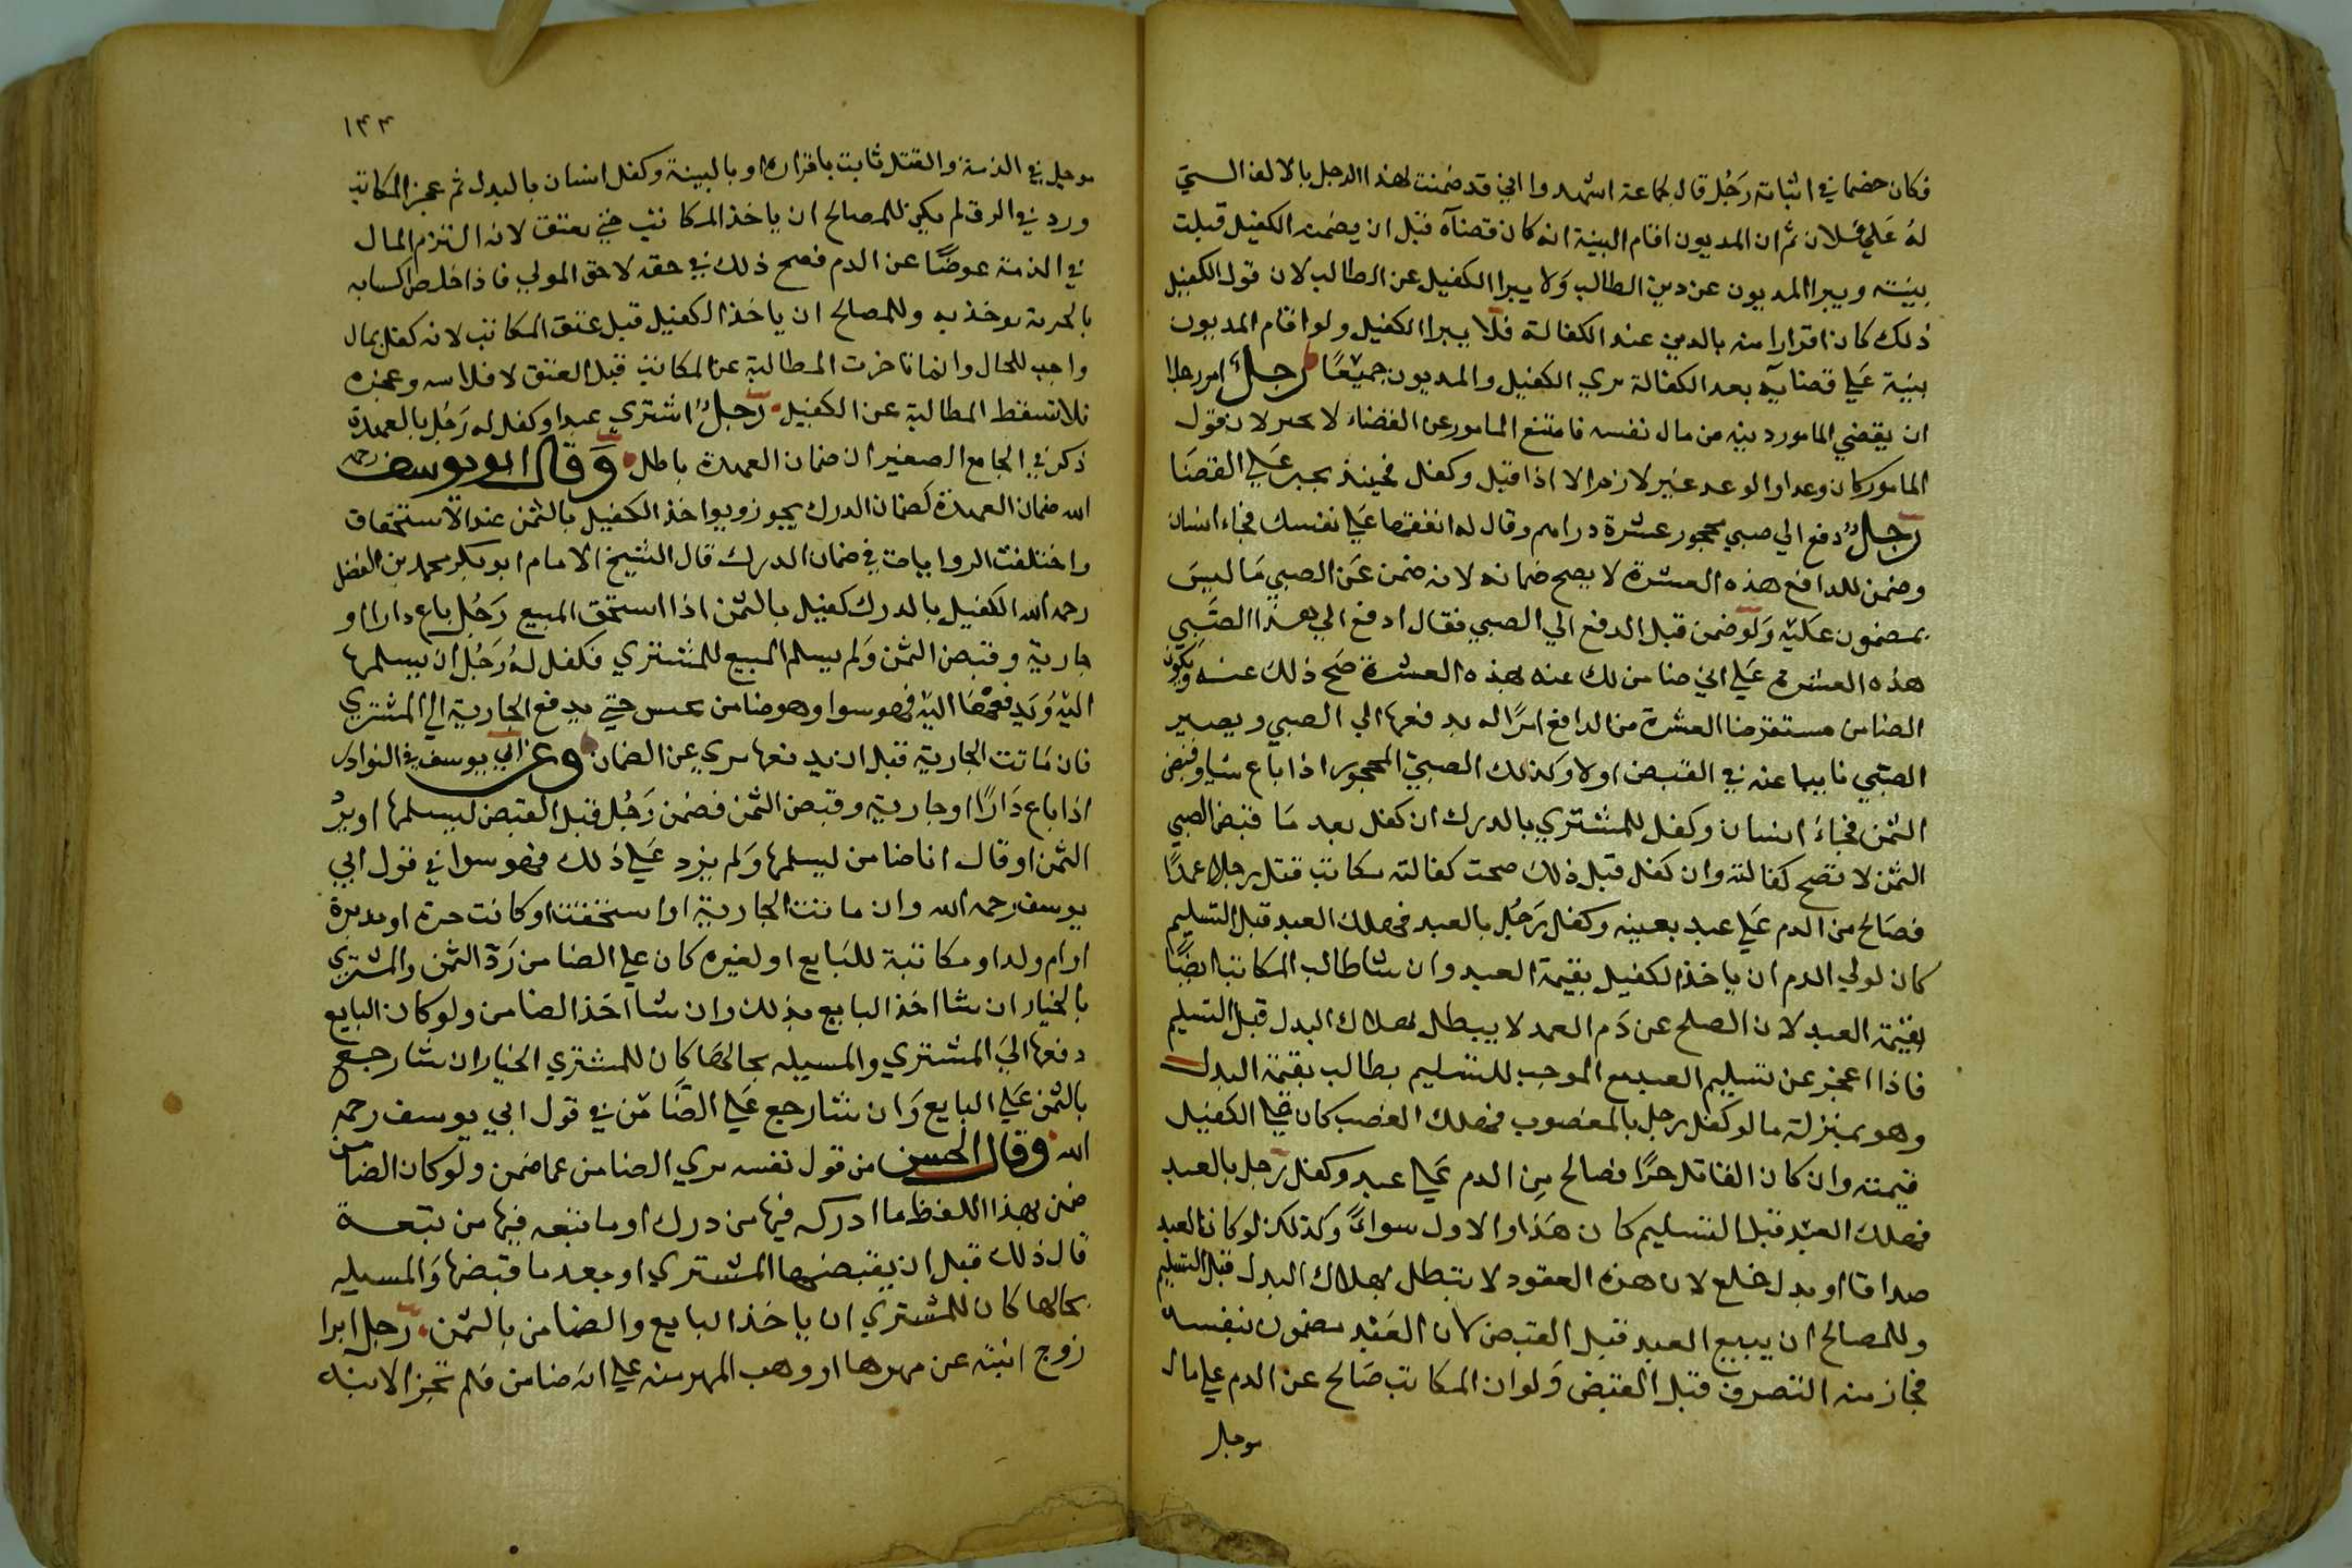 فكان خصما في اثباته رَجُل قال لجماعة اشهدوا اني قد ضمنت لهذا الرجل بالالف التي
لهُ عَلي فلان ثم ان المديون اقام البينة انه كان قضاه قبل ان يضمنه الكفيل قبلت
بينته ويبرا المديون عن دين الطالب وَلا يبرا الكفيل عن الطالب لان قول الكفيل
ذلك كان اقرارا منه بالدين عند الكفالة فلا يبرا الكفيل ولو اقام المديون
بينة عَلي قضايه بعد الكفالة بري الكفيل والمديون جميعًا رجلٌ امر رجلا
ان يقضي المامور دينه من مال نفسه فامتنع المامور عن القضاء لا يجبر لان قول
المامور كان وعدا والوعد غير لازم الا اذا قبل وكفل فحينئذ يجبر عَلي القضَا
رجلٌ دفع الي صبي محجور عشرة دراهم وقال له انفقها عَلي نفسك فجاء انسان
وضمن للدافع هذه العشرة لا يصح ضمانه لانه ضمن عَن الصبي مَا ليسَ
بمضمون عليْه وَلو ضمن قبل الدفع الي الصبي فقال ادفع الي هذا الصَّبِي
هذه العشرة عَلي اني ضامن لك عنه بهذه العشرة صَح ذلك عنه ويكون
الضامن مستقرضا العشرة من الدافع امرًا له بدفعها الي الصبي ويصير
الصبي نايبا عنه في القبض اولا وكذلك الصبيّ المحجور اذا باع شيا وقبض
الثمن فجاءَ انسان وكفل للمشتري بالدرك ان كفل بعد مَا قبض الصبي
الثمن لا تصح كفالته وان كفل قبل ذلك صحت كفالته مكاتب قتل رجلا عمدًا
فصَالح من الدم عَلي عبد بعينه وكفل رَجُل بالعبد فهلك العبد قبل التسليم
كان لولي الدم ان ياخذ الكفيل بقيمة العبد وان شا طالب المكاتب ايضًا
بقيْمة العبد لان الصلح عن دَم العمد لا يبطل بهلاك البدل قبل التسليم
فاذا اعجز عن تسليم العبد مع الموجب للتسليم يطالب بقيمة البدل
وهو بمنزلة ما لو كفل رجل بالمغصوب فهلك الغصب كان عَلي الكفيل
قيمته وان كان القاتل حرًا فصالح مِن الدم عَلي عبد وكفل رَجل بالعبد
فهلك العبْد قبل التسليم كان هَذا والاول سواءً وكذلك لو كان العبد
صداقا او بدل خلع لان هذه العقود لا تبطل بهلاك البدل قبل التسليم
وللمصالح ان يبيع العبد قبل القبض لان العَبْد مضمون بنفسه
فجاز منه التصرف قبل القبض وَلو ان المكاتب صَالح عن الدم علي مال
موجل
١٤٤
موجل في الذمة والقتل ثابت باقراره او بالبينة وكفل انسان بالبدل ثم عجز المكاتب
ورد في الرق لم يكن للمصالح ان ياخذ المكاتب حتي يعتق لانه التزم المال
في الذمة عوضًا عن الدم فصح ذلك في حقه لا حق المولي فاذا خلص اكسابه
بالحرية يوخذ به وللمصالح ان ياخذ الكفيل قبل عتق المكاتب لانه كفل بمال
واجب للحال وانما تاخرت المطالبة عن المكاتب قبل العتق لافلاسه وعجزه
فلا تسقط المطالبة عن الكفيل رَجلٌ اشتري عبدا وكفل له رَجُل بالعهدة
ذكر في الجامع الصغير ان ضمان العهدة باطل وَقال ابو يوسف رحمه
الله ضمان العهدة كضمان الدرك يجوز ويواخذ الكفيل بالثمن عند الاستحقاق
واختلفت الروايات في ضمان الدرك قال الشيخ الامام ابو بكر محمد بن الفضل
رحمه الله الكفيل بالدرك كفيل بالثمن اذا استحق المبيع رَجُل باع دارا او
جارية وقبض الثمن وَلم يسلم المبيع للمشتري فكفل لهُ رَجُل ان يسلمها
اليْه وَيدفعهَا اليْه فهو سوا وهو ضامن يحبس حتي يدفع الجارية الي المشتري
فان مَاتت الجارية قبل ان يدفعها بري عن الضمان وعن ابي يوسف في النوادر
اذا باع دَارًا او جارية وقبض الثمن فضمن رَجُل قبل القبض ليسلمها او يردّ
الثمن او قال انا ضامن ليسلمها وَلم يزد عَلي ذلك فهو سوا في قول ابي
يوسف رحمه الله وان ماتت الجارية او استحقت او كانت حرة او مدبرة
او ام ولد او مكاتبة للبَايع او لغيره كان علي الضامن رَدّ الثمن والمشتري
بالخيار ان شا اخذ البايع بذلك وان شا اخَذ الضامن ولو كان البايع
دفعها اليَ المشتري والمسيله بحالهَا كان للمشتري الخيار ان شا رجع
بالثمن عَلي البايع وَان شا رجع عَلي الضَّامن في قول ابي يوسف رحمه
الله وقال الحسن من قول نفسه بري الضامن عما ضمن ولو كان الضامن
ضمن بهذا اللفظ ما ادركه فيها من درك او ما تبعه فيها من تبعة
قال ذلك قبل ان يقبضها المشتري او بعد ما قبضها وَالمسيله
بحالها كان للمشتري ان ياخَذ البايع والضامن بالثمن رَجل ابرا
زوج ابنته عن مهرها او وهب المهر منه علي انه ضامن فلم تجز الابنة